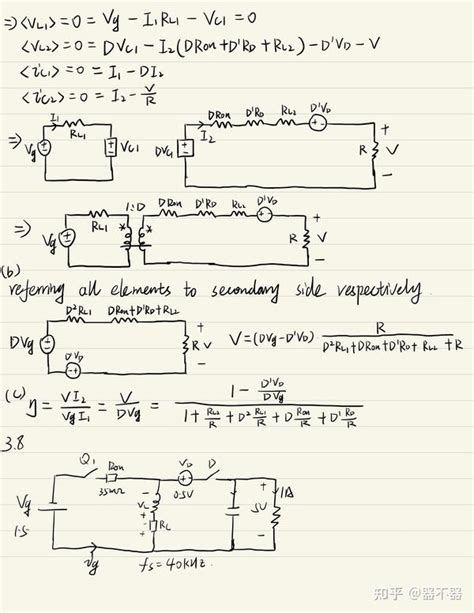 ⇒ <VL1> = 0 = Vg - I1RL1 - VC1 = 0
<VL2> = 0 = DVC1 - I2(DRon + D'RD + RL2) - D'VD - V
<iC1> = 0 = I1 - DI2
<iC2> = 0 = I2 - V/R
⇒ I1 RL1 Vg VC1 DVC1 I2 DRon D'RD RL2 D'VD + R V -
⇒ Vg RL1 1:D DRon D'RD RL2 D'VD + R V -
(b)
referring all elements to secondary side respectively.
D²RL1 DRon+D'RD+RL2
DVg D'VD R V V = (DVg - D'VD) · R / (D²RL1 + DRon + D'RD + RL2 + R)
(c) η = VI2 / VgI1 = V / DVg = (1 - D'VD / DVg) / (1 + RL2/R + D² RL1/R + D Ron/R + D' RD/R)
3.8
Q1 Ron 35mΩ VD 0.5V D
Vg 1.5 - VL + RL + 5V - 1A
fs = 40KHz
知乎 @器不器